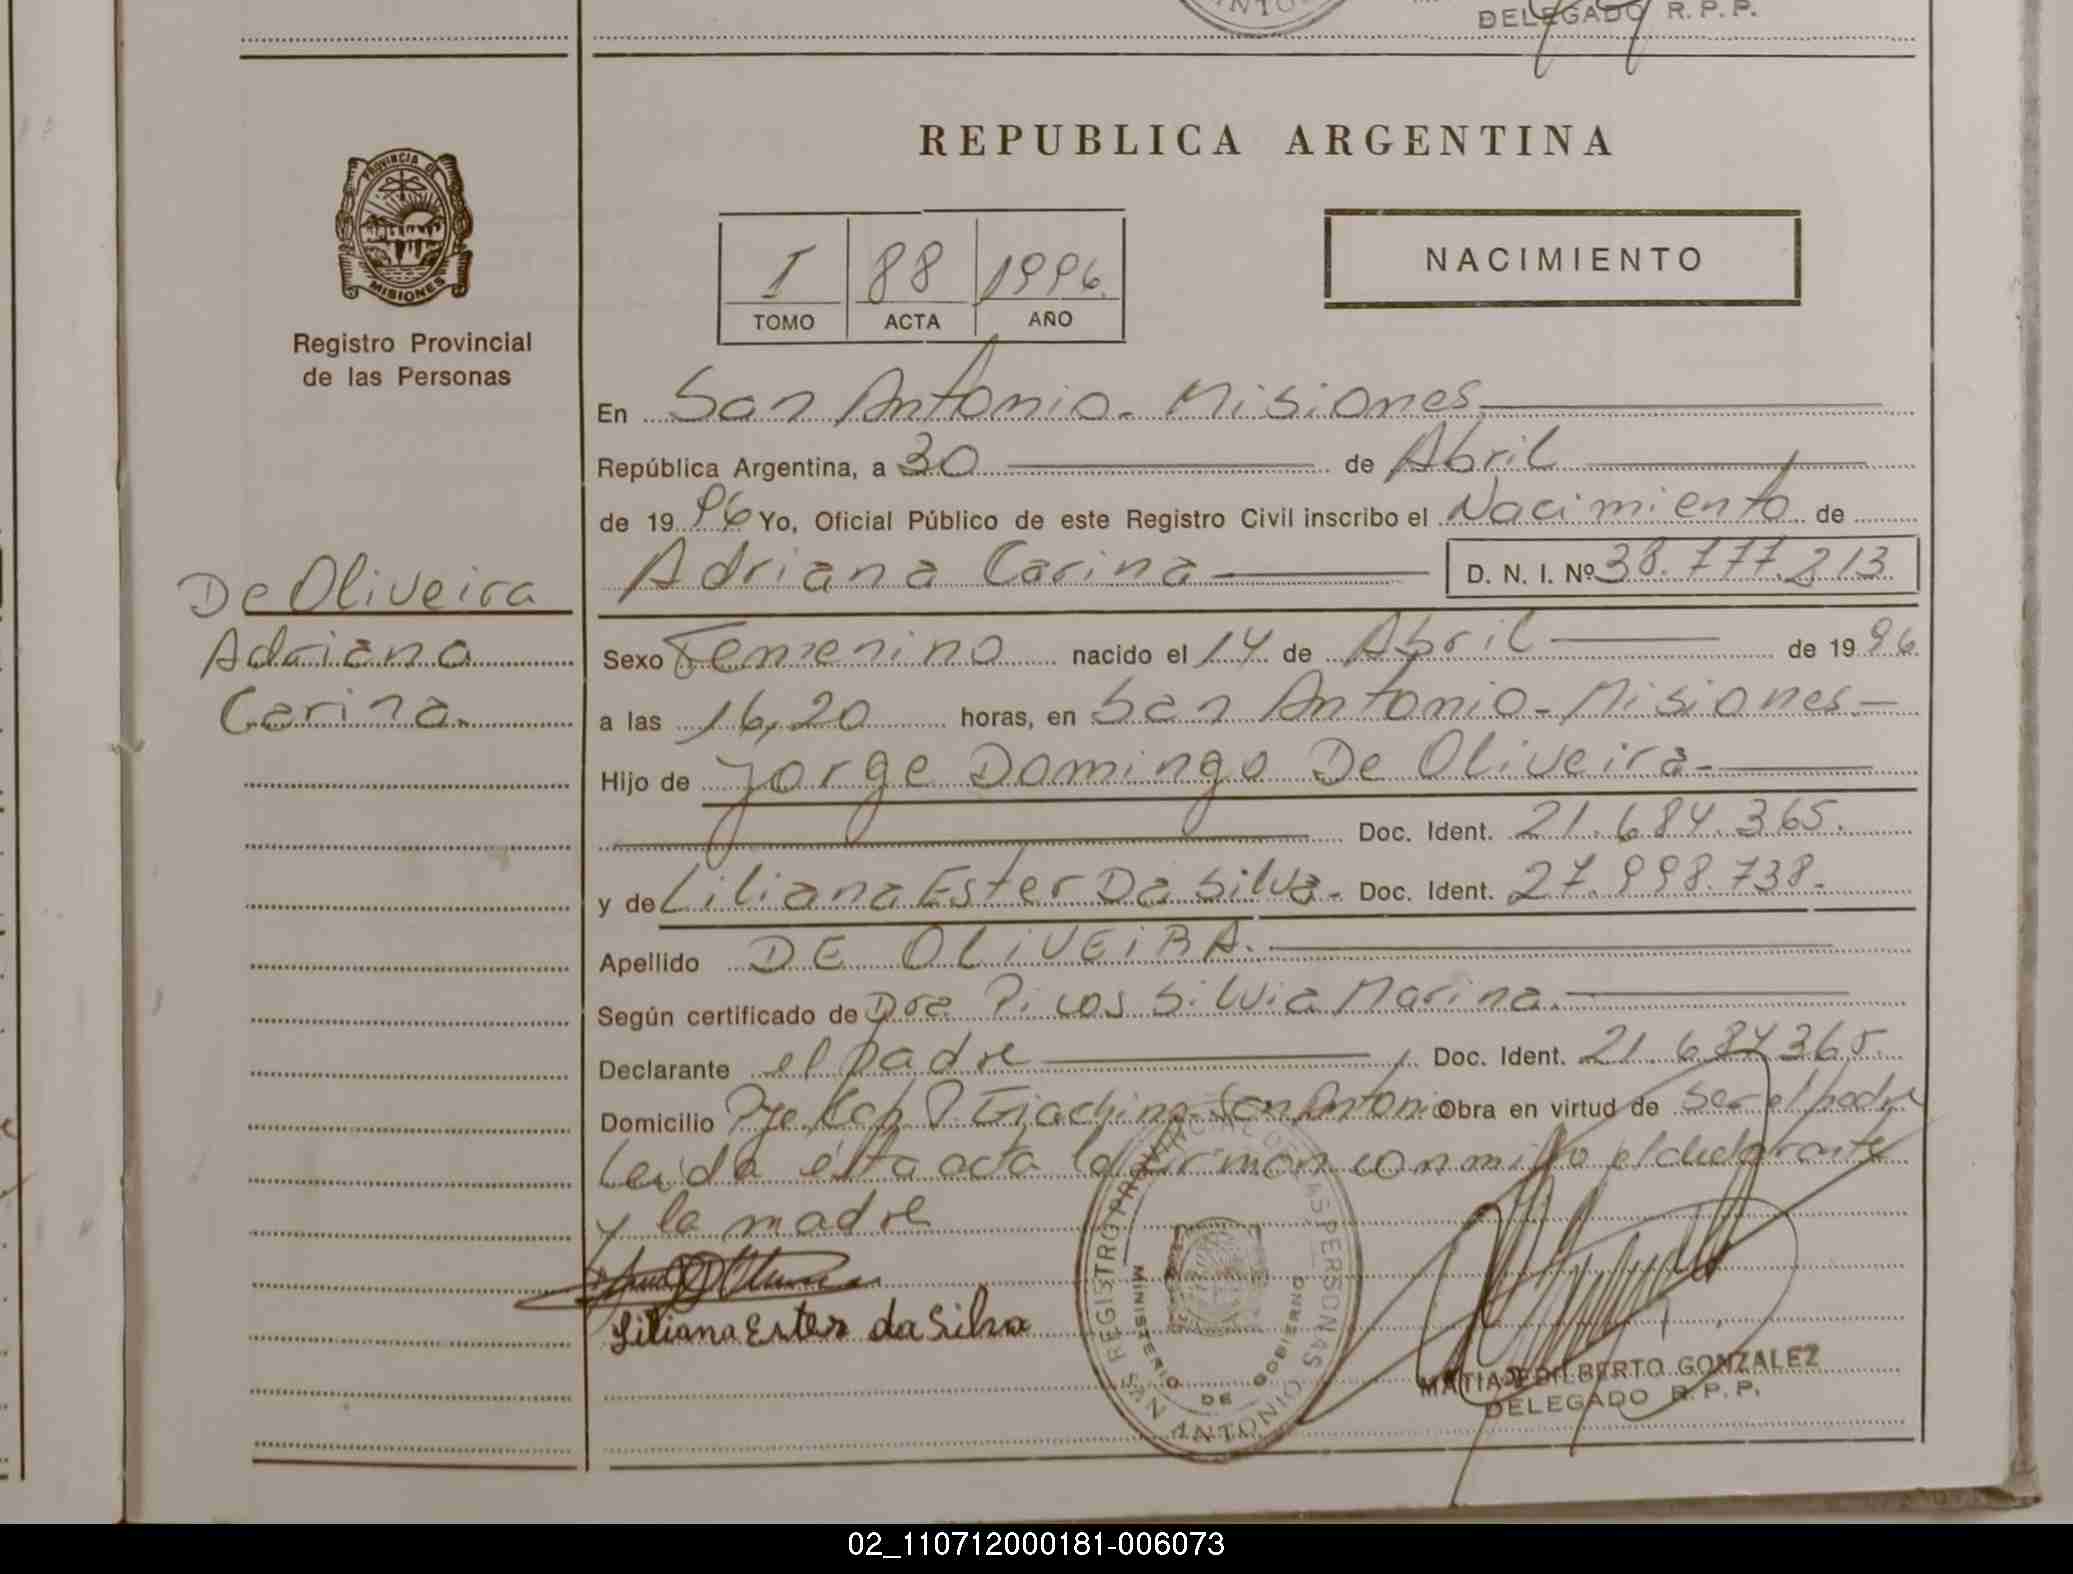 DELEGADO R. P. P.
REPUBLICA ARGENTINA
PROVINCIA DE
MISIONES
Registro Provincial
de las Personas
I 88 1996.
TOMO ACTA AÑO
NACIMIENTO
En San Antonio - Misiones
República Argentina, a 30 de Abril
de 1996 Yo, Oficial Público de este Registro Civil inscribo el Nacimiento de
Adriana Carina D. N. I. Nº 38.777.213
De Oliveira
Adriana
Carina
Sexo Femenino nacido el 14 de Abril de 1996
a las 16,20 horas, en San Antonio - Misiones -
Hijo de Jorge Domingo De Oliveira -
Doc. Ident. 21.684.365.
y de Liliana Ester Da Silva - Doc. Ident. 27.998.738.
Apellido DE OLIVEIRA.
Según certificado de Dra Picos Silvia Marina.
Declarante el padre Doc. Ident. 21.684.365.
Domicilio San Antonio Obra en virtud de ser el padre
Leída ésta acta la firman conmigo el declarante
y la madre
Liliana Ester da Silva
REGISTRO PROVINCIAL DE LAS PERSONAS
MINISTERIO DE GOBIERNO
SAN ANTONIO
MATIAS EDILBERTO GONZALEZ
DELEGADO R. P. P.
02_110712000181-006073